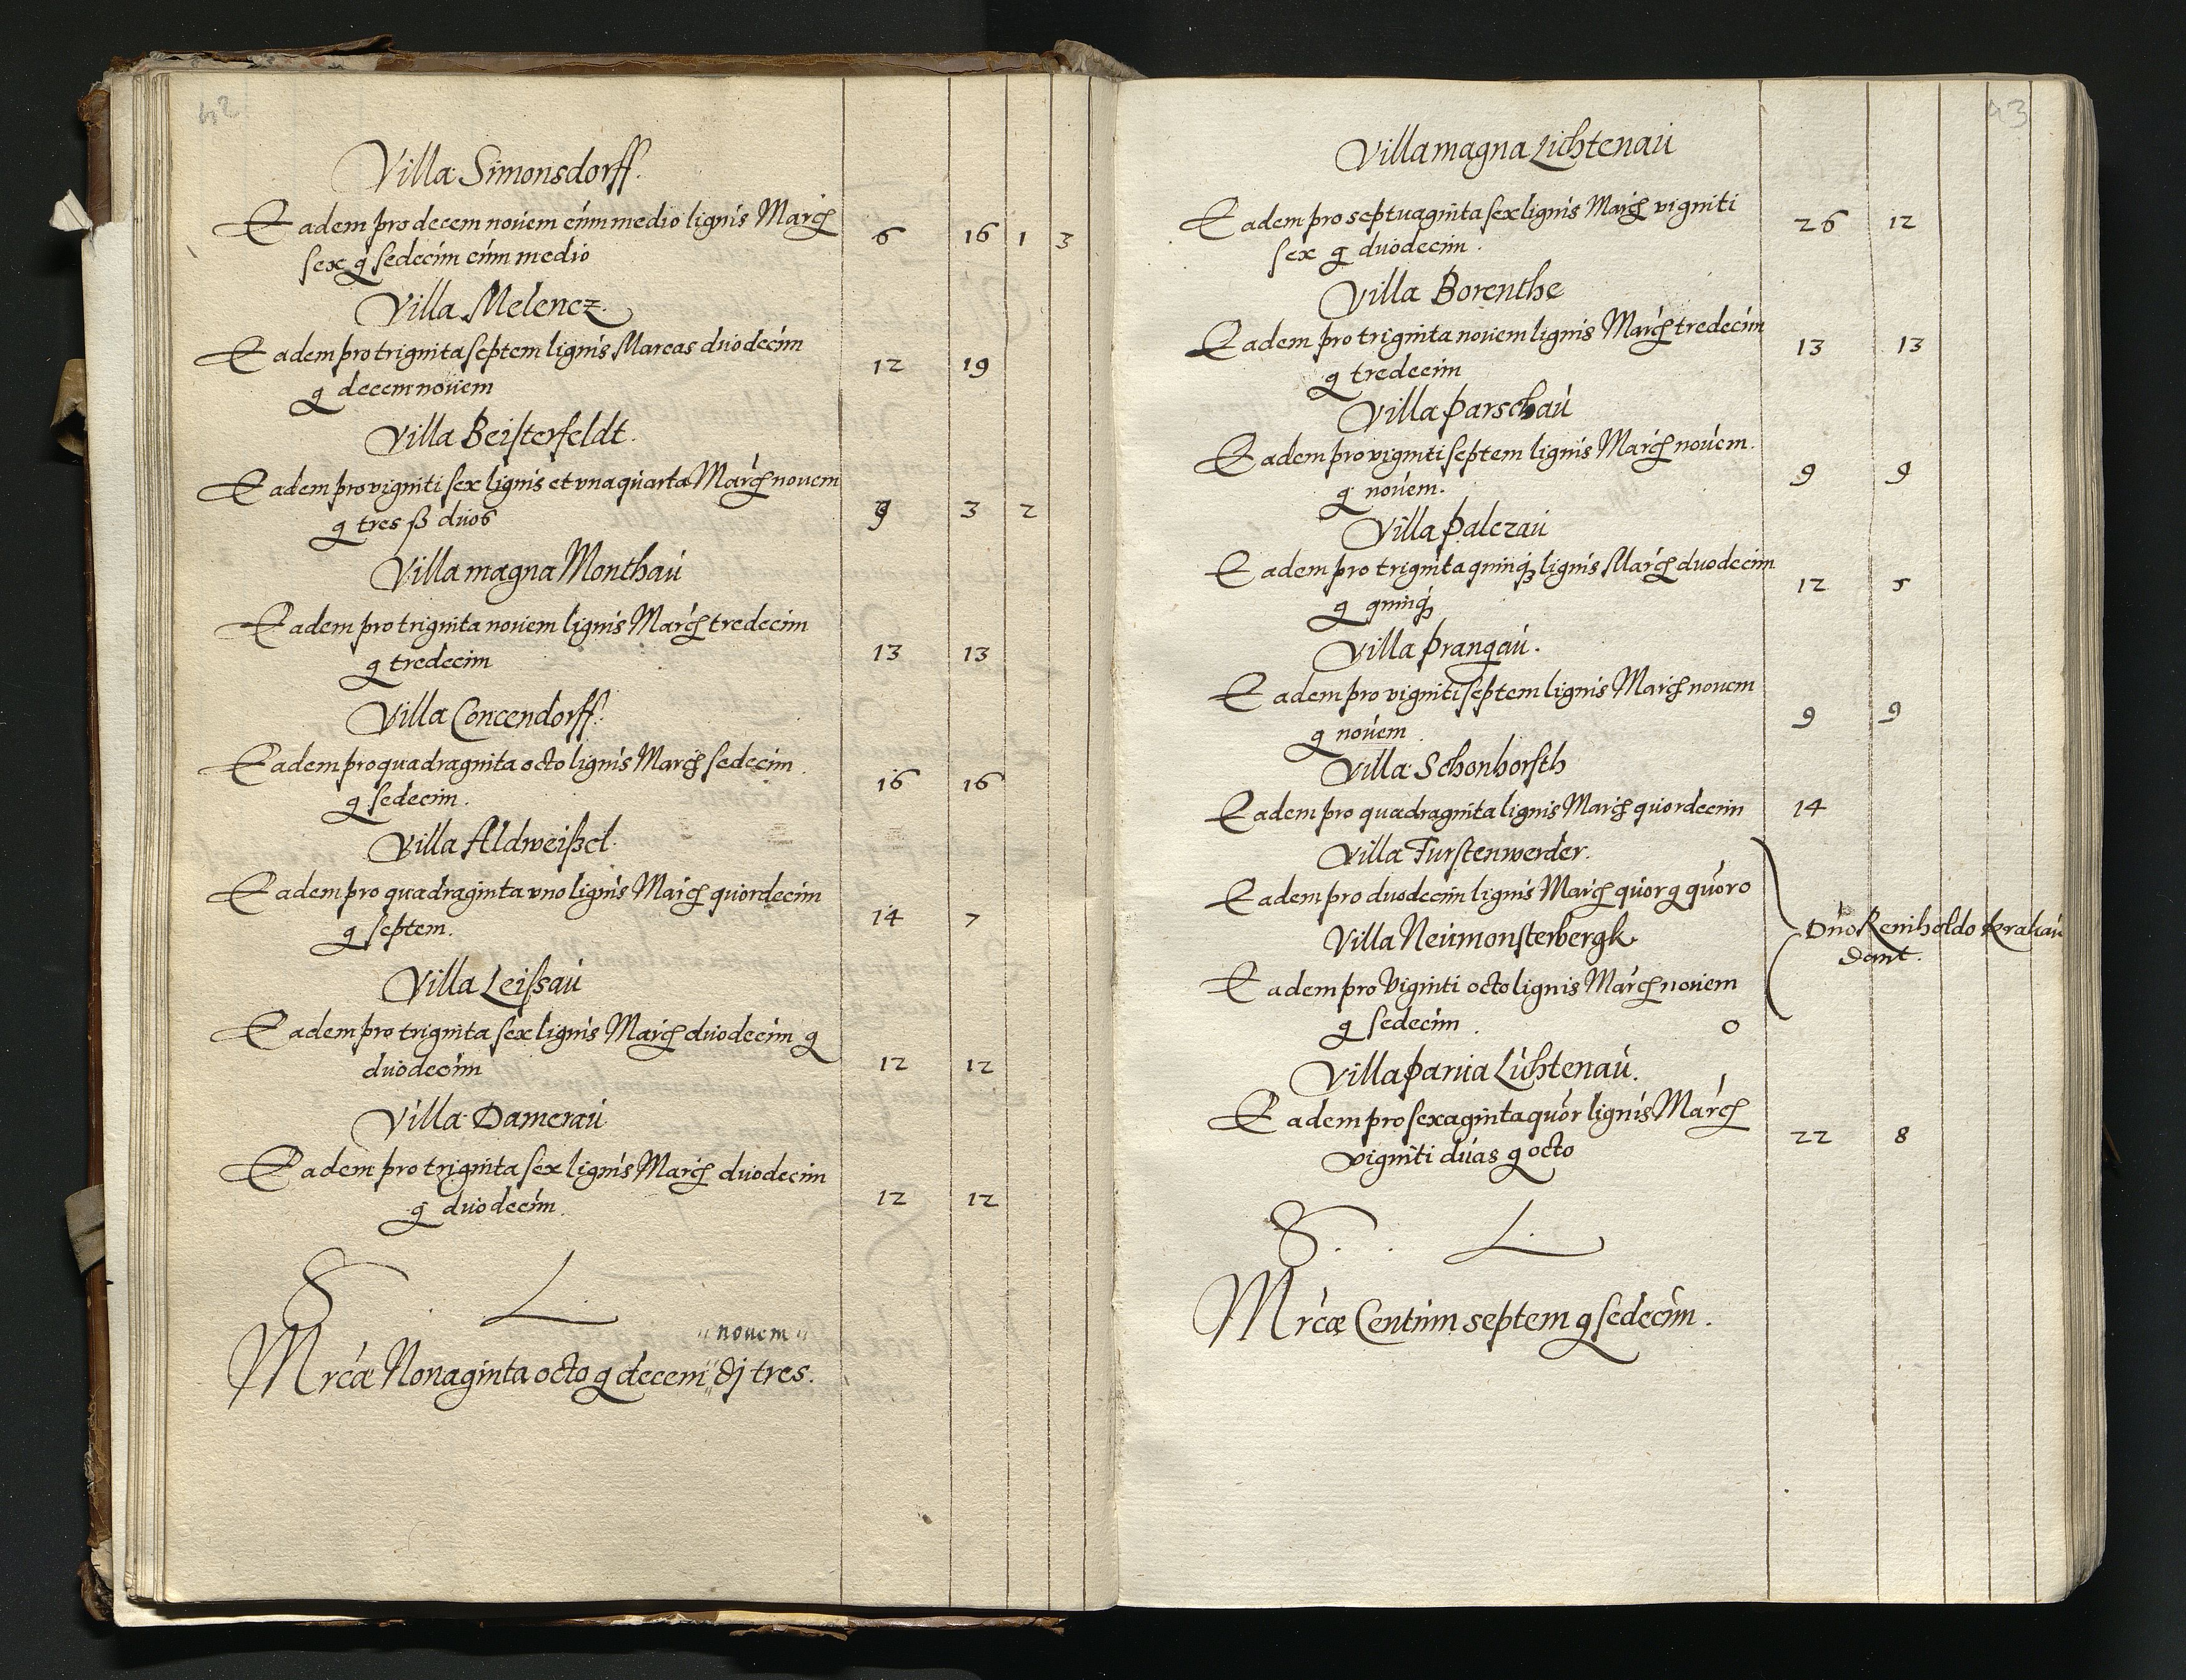 42
Villa Simonsdorff.
Eadem pro decem novem cum medio lignis March 6 16 1 3
sex g sedecim cum medio
Villa Melencz.
Eadem pro triginta septem lignis Marcas duodecim 12 19
g decem novem
Villa Beisterfeldt.
Eadem pro viginti sex lignis et vna quarta March novem 9 3 2
g tres ß duos
Villa magna Monthau
Eadem pro triginta novem lignis March tredecim 13 13
g tredecim
Villa Concendorff.
Eadem pro quadraginta octo lignis March sedecim 16 16
g sedecim.
Villa Aldweißel.
Eadem pro quadraginta vno lignis March quordecim 14 7
g septem.
Villa Leissau
Eadem pro triginta sex lignis March duodecim g 12 12
duodecim
Villa Damerau
Eadem pro triginta sex lignis March duodecim 12 12
g duodecim.
S. L.
novem
Mrcæ Nonaginta octo g decem dj tres.
43
Villa magna Lichtenau
Eadem pro septuaginta sex lignis March viginti 26 12
sex g duodecim.
Villa Borenthe
Eadem pro triginta novem lignis March tredecim 13 13
g tredecim
Villa Parschau
Eadem pro viginti septem lignis March novem. 9 9
g novem.
Villa Palczau
Eadem pro triginta quinqȝ lignis March duodecim 12 5
g quinqȝ
Villa Prangau.
Eadem pro viginti septem lignis March novem 9 9
g novem.
Villa Schonhorsth
Eadem pro quadraginta lignis March quordecim 14
Villa Furstenwerder.
Eadem pro duodecim lignis March quor g quoro
Villa Neumonsterbergk
Dno Reinholdo Krakau
dant.
Eadem pro Viginti octo lignis March novem
g sedecim. 0
Villa parua Lichtenau.
Eadem pro sexaginta quor lignis March 22 8
viginti duas g octo
S. L.
Mrcæ Centum septem g sedecim.